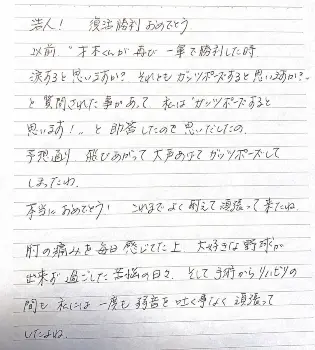 浩人！ 復活勝利おめでとう
以前、"才木くんが再び一軍で勝利した時
涙すると思いますか？ それともガッツポーズすると思いますか？"
と質問された事があって 私は"ガッツポーズすると
思います！"と即答したので思いだしたの。
予想通り 飛びあがって大声あげてガッツポーズして
しまったわ。
本当におめでとう！ これまでよく耐えて頑張って来たね。
肘の痛みを毎日感じてた上、大好きな野球が
出来ず過ごした苦悩の日々、そして手術からリハビリの
間も 私には一度も弱音を吐く事なく頑張って
したよね。